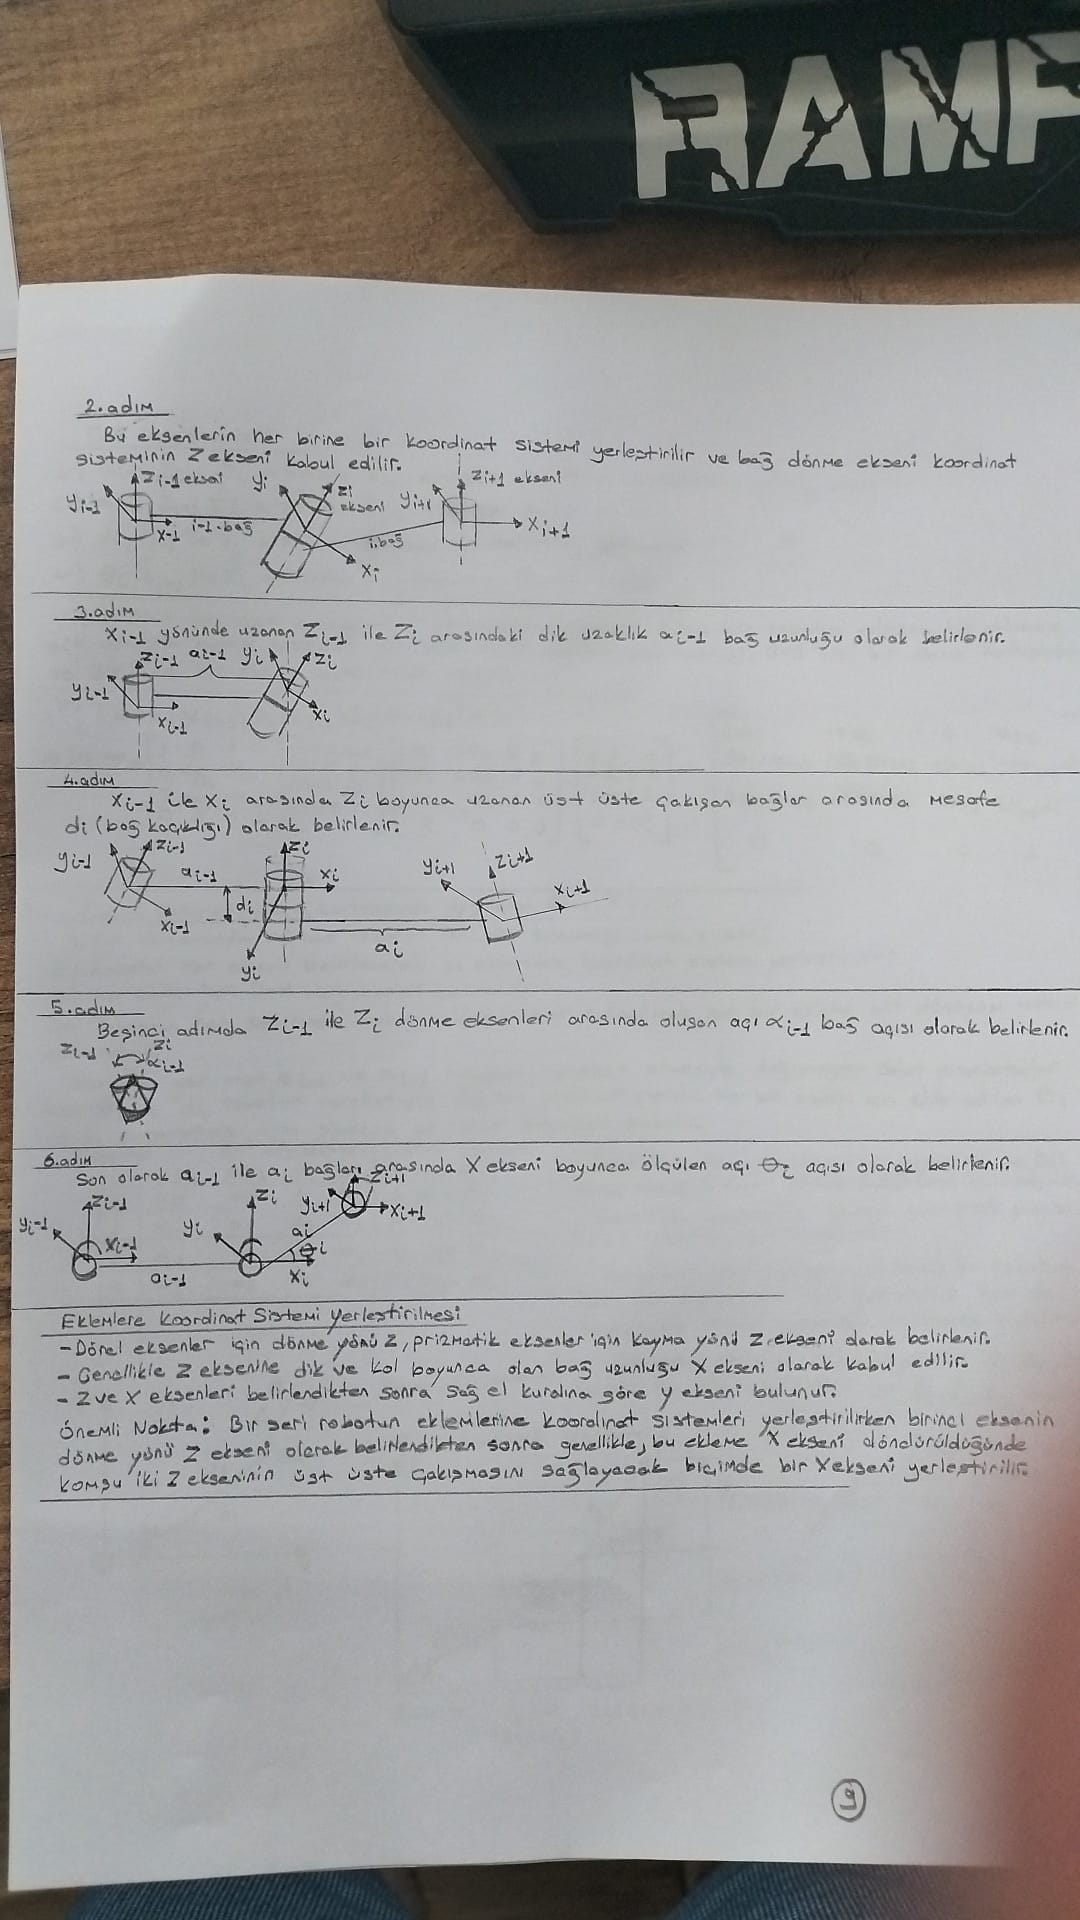 RAMP
2.adım
Bu eksenlerin her birine bir koordinat sistemi yerleştirilir ve bağ dönme ekseni koordinat
sisteminin Z ekseni kabul edilir.
Zi-1 eksai yi zi ekseni yi+1 Zi+1 ekseni
yi-1 x-1 i-1.bağ xi i.bağ Xi+1
3.adım
Xi-1 yönünde uzanan Zi-1 ile Zi arasındaki dik uzaklık ai-1 bağ uzunluğu olarak belirlenir.
Zi-1 ai-1 yi Zi
yi-1 xi-1 xi
4.adım
Xi-1 ile Xi arasında Zi boyunca uzanan üst üste çakışan bağlar arasında mesafe
di (bağ kaçıklığı) olarak belirlenir.
yi-1 Zi-1 ai-1 Zi xi yi+1 Zi+1 xi+1
xi-1 di yi ai
5.adım
Beşinci adımda Zi-1 ile Zi dönme eksenleri arasında oluşan açı αi-1 bağ açısı olarak belirlenir.
Zi-1 Zi
αi-1
6.adım
Son olarak ai-1 ile ai bağları arasında X ekseni boyunca ölçülen açı θi açısı olarak belirlenir.
yi-1 Zi-1 yi Zi yi+1 Zi+1 Xi+1
Xi-1 ai-1 ai θi Xi
Eklemlere Koordinat Sistemi Yerleştirilmesi
-Dönel eksenler için dönme yönü Z, prizmatik eksenler için kayma yönü Z ekseni olarak belirlenir.
- Genellikle Z eksenine dik ve kol boyunca olan bağ uzunluğu X ekseni olarak kabul edilir.
- Z ve X eksenleri belirlendikten sonra sağ el kuralına göre y ekseni bulunur.
Önemli Nokta: Bir seri robotun eklemlerine koordinat sistemleri yerleştirilirken birinci eksenin
dönme yönü Z ekseni olarak belirlendikten sonra genellikle, bu ekleme X ekseni döndürüldüğünde
komşu iki Z ekseninin üst üste çakışmasını sağlayacak biçimde bir X ekseni yerleştirilir.
9